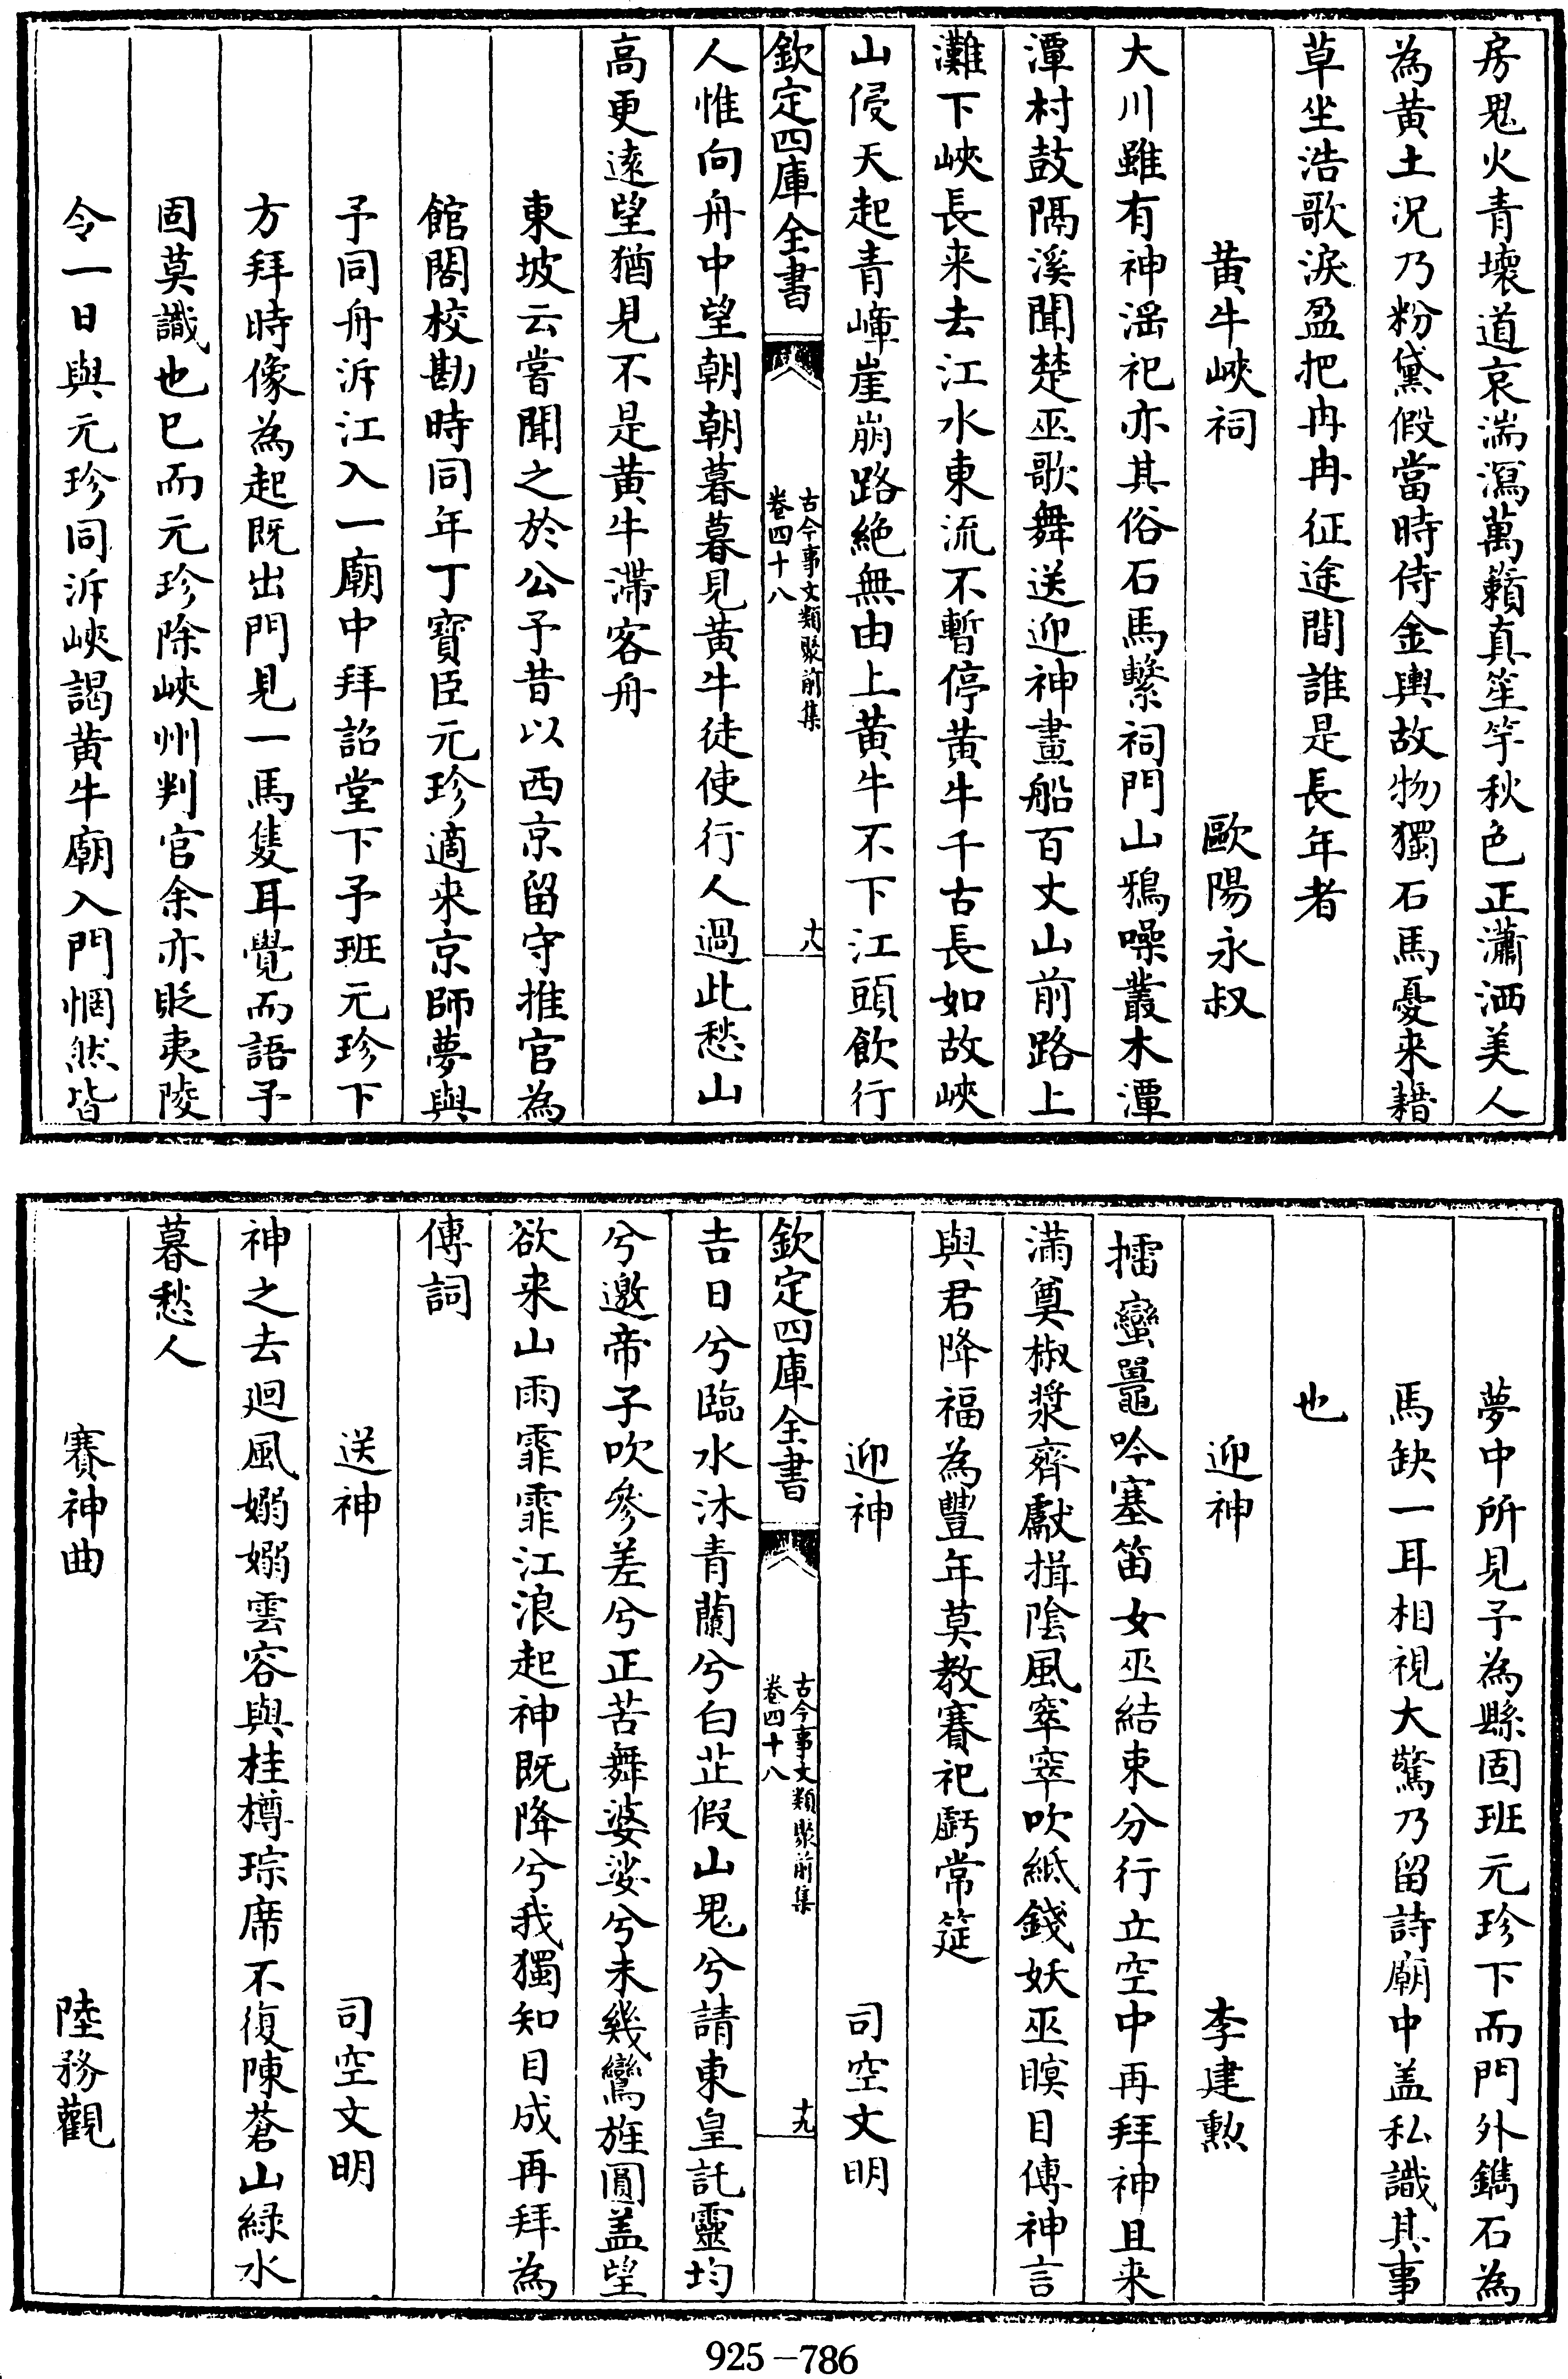 房鬼火青壞道哀湍瀉萬籟真笙竽秋色正瀟洒美人
為黄土况乃粉黛假當時侍金輿故物獨石馬憂来藉
草坐浩歌淚盈把冉冉征途間誰是長年者
黄牛峽祠 歐陽永叔
大川雖有神滛祀亦其俗石馬繫祠門山鴉噪叢木潭
潭村鼓隔溪聞楚巫歌舞送迎神畫船百丈山前路上
灘下峽長来去江水東流不暫停黄牛千古長如故峽
山侵天起青嶂崖崩路絶無由上黄牛不下江頭飲行
欽定四庫全書
古今事文類聚前集
卷四十八
十八
人惟向舟中望朝朝暮暮見黄牛徒使行人過此愁山
高更遠望猶見不是黄牛滯客舟
東坡云嘗聞之於公予昔以西京留守推官為
館閣校勘時同年丁寶臣元珍適来京師夢與
予同舟泝江入一廟中拜謁堂下予班元珍下
方拜時像為起既出門見一馬隻耳覺而語予
固莫識也已而元珍除峽州判官余亦貶夷陵
令一日與元珍同泝峽謁黄牛廟入門惘然皆
夢中所見予為縣固班元珍下而門外鐫石為
馬缺一耳相視大驚乃留詩廟中盖私識其事
也
迎神 李建勲
擂蠻鼉吟塞笛女巫結束分行立空中再拜神且来
滿奠椒漿齊獻揖陰風窣窣吹紙錢妖巫瞑目傳神言
與君降福為豐年莫教賽祀虧常筵
迎神 司空文明
欽定四庫全書
古今事文類聚前集
卷四十八
十九
吉日兮臨水沐青蘭兮白芷假山鬼兮請東皇託靈均
兮邀帝子吹參差兮正苦舞婆娑兮未幾鸞旌圓盖望
欲来山雨霏霏江浪起神既降兮我獨知目成再拜為
傳詞
送神 司空文明
神之去廻風嫋嫋雲容與桂樽琮席不復陳蒼山緑水
暮愁人
賽神曲 陸務觀
925-786